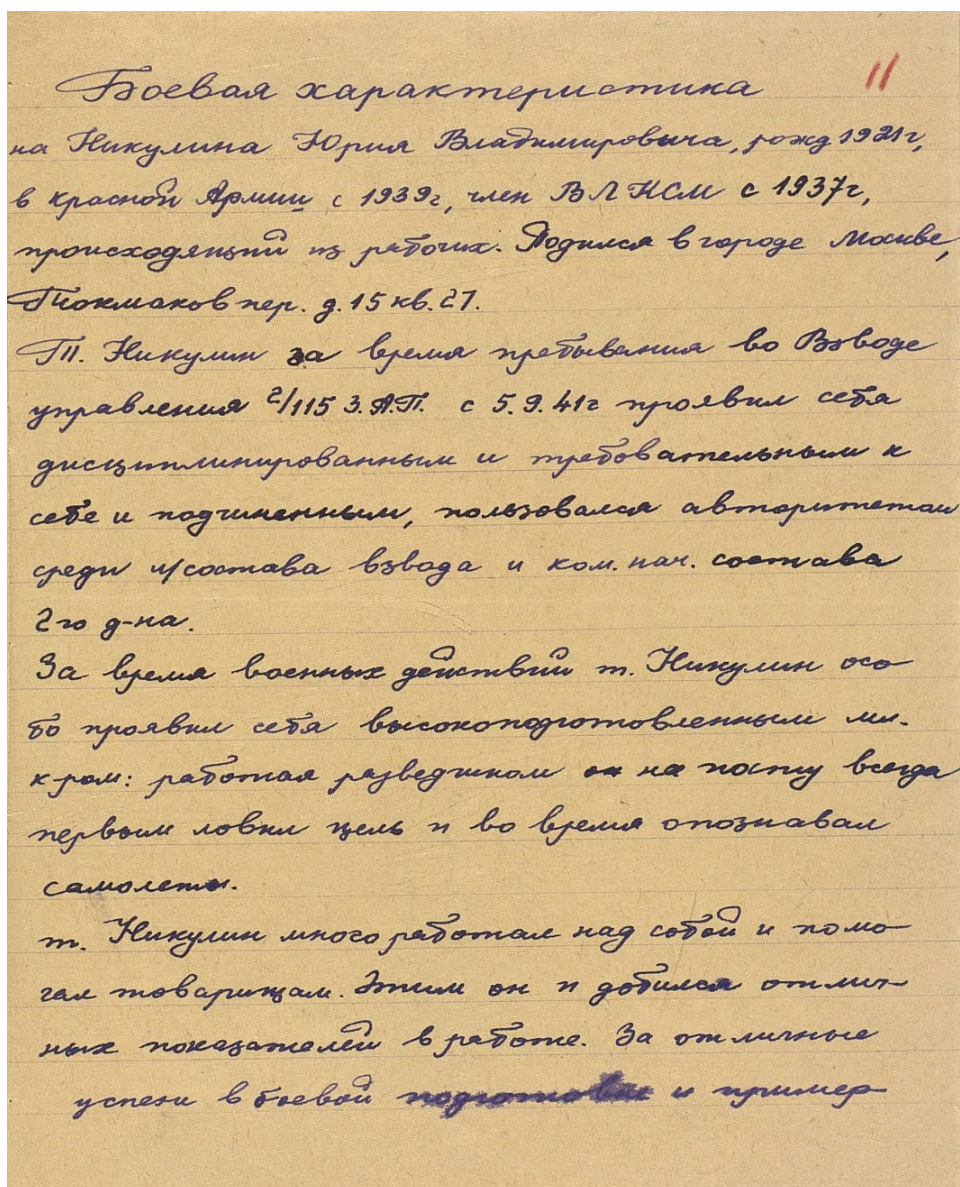 11
Боевая характеристика
на Никулина Юрия Владимировича, рожд 1921г,
в красной Армии с 1939г, член ВЛКСМ с 1937г,
происходящий из рабочих. Родился в городе Москве,
Токмаков пер. д. 15 кв. 27.
Т. Никулин за время пребывания во Взводе
управления 2/115 З.А.П. с 5.9.41г проявил себя
дисциплинированным и требовательным к
себе и подчиненным, пользовался авторитетом
среди л/состава взвода и ком. нач. состава
2го д-на.
За время военных действий т. Никулин осо-
бо проявил себя высокоподготовленным мл.
к-ром: работая разведчиком на посту всегда
первым ловил цель и во время опознавал
самолеты.
т. Никулин много работал над собой и помо-
гал товарищам. Этим он и добился отлич-
ных показателей в работе. За отличные
успехи в боевой подготовке и пример-